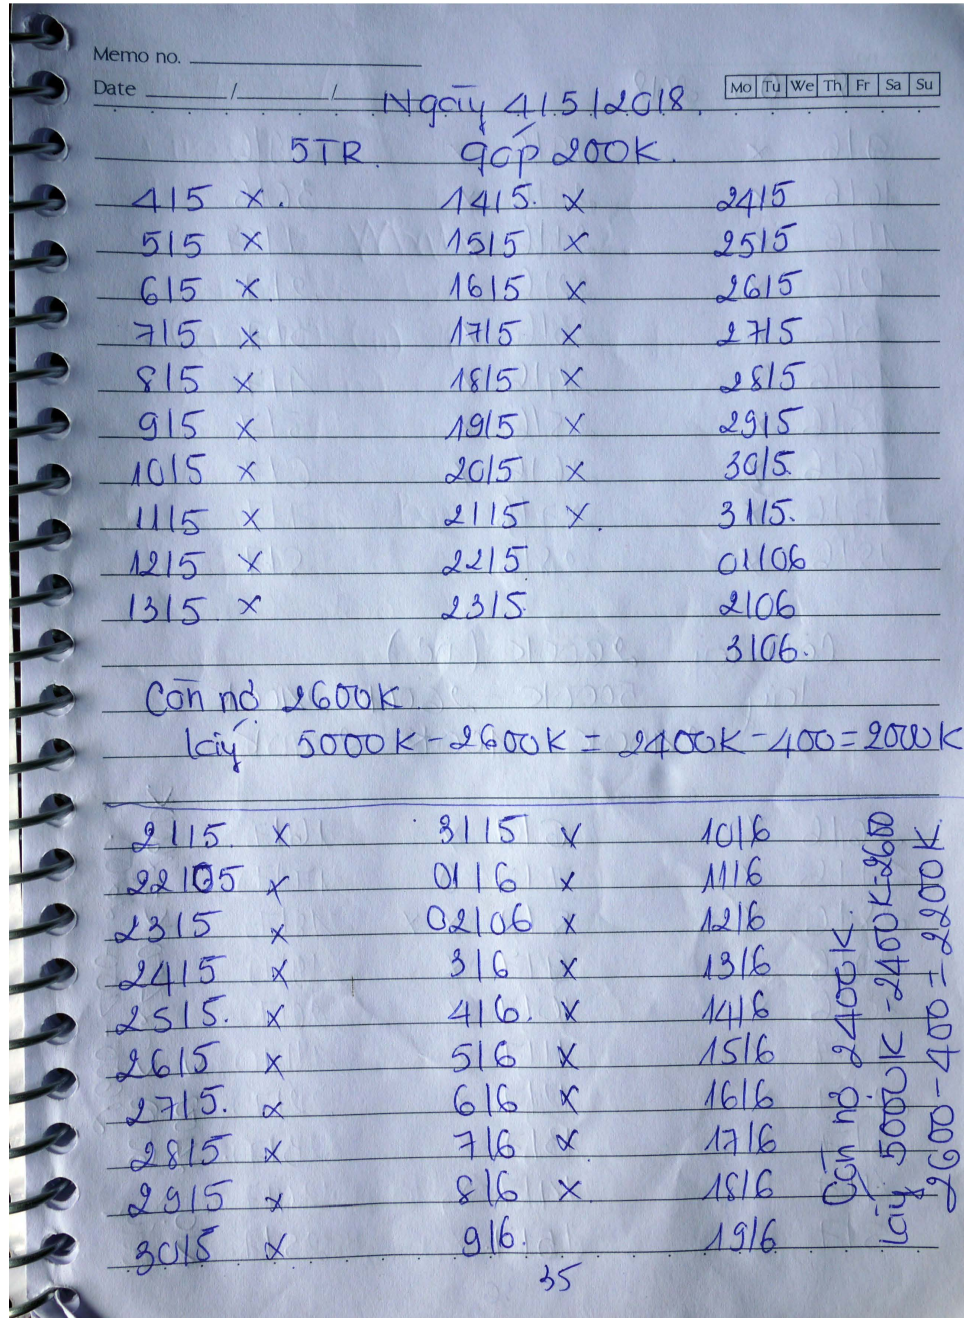 Memo no.
Date / / Mo Tu We Th Fr Sa Su
Ngày 4/5/2018.
5TR. góp 200K.
4/5 x. 14/5. x 24/5
5/5 x 15/5 x 25/5
6/5 x 16/5 x 26/5
7/5 x 17/5 x 27/5
8/5 x 18/5 x 28/5
9/5 x 19/5 x 29/5
10/5 x 20/5 x 30/5.
11/5 x 21/5 x. 31/5.
12/5 x 22/5 01/06
13/5 x 23/5 2/06
3/06.
Còn nợ 2600K
lấy 5000K - 2600K = 2400K - 400 = 2000K
21/5. x 31/5 x 10/6
22/05 x 01/6 x 11/6
23/5 x 02/06 x 12/6
24/5 x 3/6 x 13/6
25/5. x 4/6. x 14/6
26/5 x 5/6 x 15/6
27/5. x 6/6 x 16/6
28/5 x 7/6 x 17/6
29/5 x 8/6 x 18/6
30/5 x 9/6. 19/6
35
Còn nợ 2400K.
lấy 5000K - 2400K = 2600
2600 - 400 = 2200K